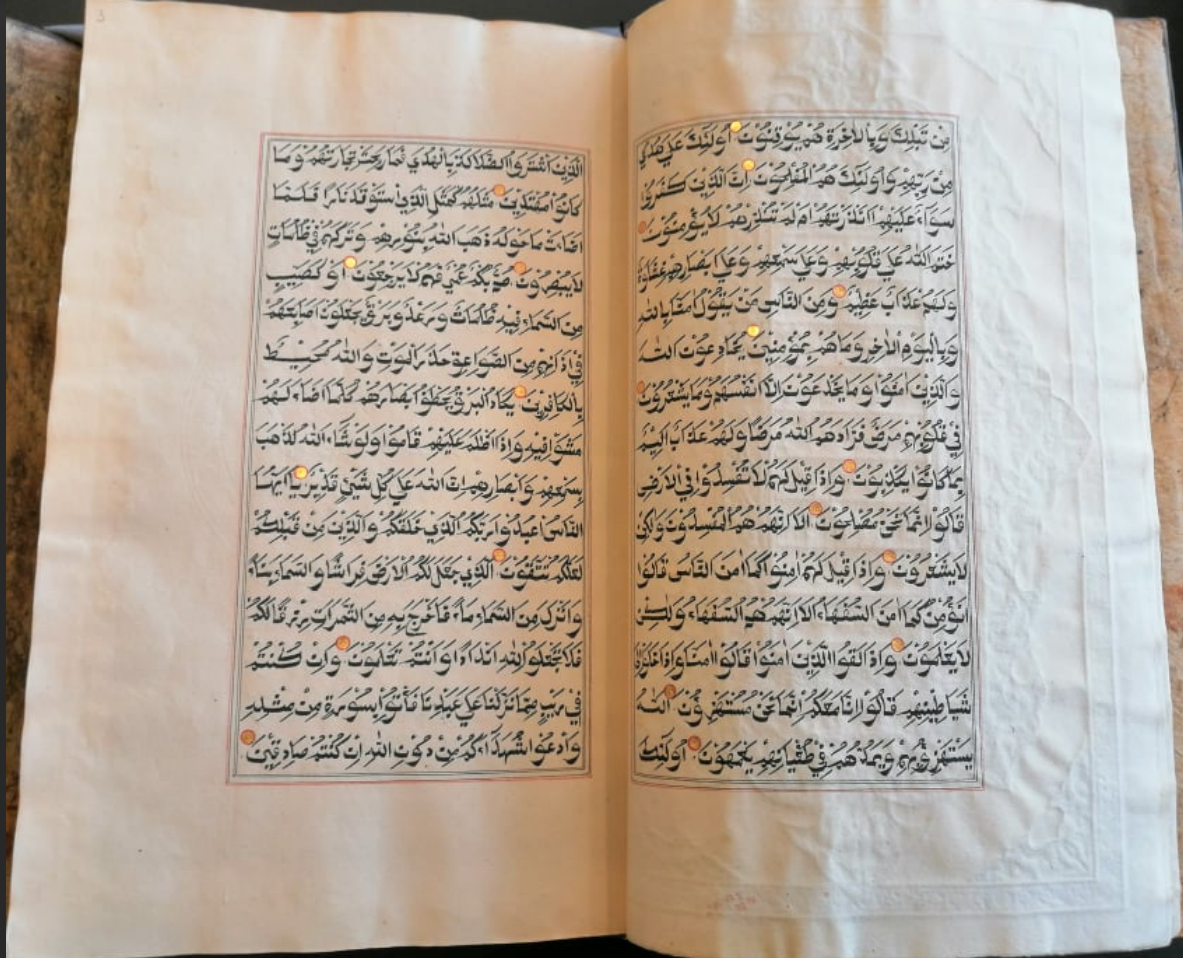 مِنْ قَبْلِكَ وَبِالْاٰخِرَةِ هُمْ يُوْقِنُوْنَ اُولٰٓئِكَ عَلٰى هُدًى
مِنْ رَبِّهِمْ وَاُولٰٓئِكَ هُمُ الْمُفْلِحُوْنَ اِنَّ الَّذِيْنَ كَفَرُوْا
سَوَآءٌ عَلَيْهِمْ ءَاَنْذَرْتَهُمْ اَمْ لَمْ تُنْذِرْهُمْ لَا يُؤْمِنُوْنَ
خَتَمَ اللّٰهُ عَلٰى قُلُوْبِهِمْ وَعَلٰى سَمْعِهِمْ وَعَلٰى اَبْصَارِهِمْ غِشَاوَةٌ
وَلَهُمْ عَذَابٌ عَظِيْمٌ وَمِنَ النَّاسِ مَنْ يَقُوْلُ اٰمَنَّا بِاللّٰهِ
وَبِالْيَوْمِ الْاٰخِرِ وَمَا هُمْ بِمُؤْمِنِيْنَ يُخَادِعُوْنَ اللّٰهَ
وَالَّذِيْنَ اٰمَنُوْا وَمَا يَخْدَعُوْنَ اِلَّا اَنْفُسَهُمْ وَمَا يَشْعُرُوْنَ
فِيْ قُلُوْبِهِمْ مَرَضٌ فَزَادَهُمُ اللّٰهُ مَرَضًا وَلَهُمْ عَذَابٌ اَلِيْمٌ
بِمَا كَانُوْا يَكْذِبُوْنَ وَاِذَا قِيْلَ لَهُمْ لَا تُفْسِدُوْا فِي الْاَرْضِ
قَالُوْا اِنَّمَا نَحْنُ مُصْلِحُوْنَ اَلَا اِنَّهُمْ هُمُ الْمُفْسِدُوْنَ وَلٰكِنْ
لَا يَشْعُرُوْنَ وَاِذَا قِيْلَ لَهُمْ اٰمِنُوْا كَمَا اٰمَنَ النَّاسُ قَالُوْا
اَنُؤْمِنُ كَمَا اٰمَنَ السُّفَهَاءُ اَلَا اِنَّهُمْ هُمُ السُّفَهَاءُ وَلٰكِنْ
لَا يَعْلَمُوْنَ وَاِذَا لَقُوا الَّذِيْنَ اٰمَنُوْا قَالُوْا اٰمَنَّا وَاِذَا خَلَوْا اِلٰى
شَيَاطِيْنِهِمْ قَالُوْا اِنَّا مَعَكُمْ اِنَّمَا نَحْنُ مُسْتَهْزِؤُنَ اَللّٰهُ
يَسْتَهْزِئُ بِهِمْ وَيَمُدُّهُمْ فِيْ طُغْيَانِهِمْ يَعْمَهُوْنَ اُولٰٓئِكَ
الَّذِيْنَ اشْتَرَوُا الضَّلَالَةَ بِالْهُدٰى فَمَا رَبِحَتْ تِجَارَتُهُمْ وَمَا
كَانُوْا مُهْتَدِيْنَ مَثَلُهُمْ كَمَثَلِ الَّذِي اسْتَوْقَدَ نَارًا فَلَمَّا
اَضَاءَتْ مَا حَوْلَهُ ذَهَبَ اللّٰهُ بِنُوْرِهِمْ وَتَرَكَهُمْ فِيْ ظُلُمَاتٍ
لَا يُبْصِرُوْنَ صُمٌّ بُكْمٌ عُمْيٌ فَهُمْ لَا يَرْجِعُوْنَ اَوْ كَصَيِّبٍ
مِنَ السَّمَاءِ فِيْهِ ظُلُمَاتٌ وَرَعْدٌ وَبَرْقٌ يَجْعَلُوْنَ اَصَابِعَهُمْ
فِيْ اٰذَانِهِمْ مِنَ الصَّوَاعِقِ حَذَرَ الْمَوْتِ وَاللّٰهُ مُحِيْطٌ
بِالْكَافِرِيْنَ يَكَادُ الْبَرْقُ يَخْطَفُ اَبْصَارَهُمْ كُلَّمَا اَضَاءَ لَهُمْ
مَشَوْا فِيْهِ وَاِذَا اَظْلَمَ عَلَيْهِمْ قَامُوْا وَلَوْ شَاءَ اللّٰهُ لَذَهَبَ
بِسَمْعِهِمْ وَاَبْصَارِهِمْ اِنَّ اللّٰهَ عَلٰى كُلِّ شَيْءٍ قَدِيْرٌ يَا اَيُّهَا
النَّاسُ اعْبُدُوْا رَبَّكُمُ الَّذِيْ خَلَقَكُمْ وَالَّذِيْنَ مِنْ قَبْلِكُمْ
لَعَلَّكُمْ تَتَّقُوْنَ اَلَّذِيْ جَعَلَ لَكُمُ الْاَرْضَ فِرَاشًا وَالسَّمَاءَ بِنَاءً
وَاَنْزَلَ مِنَ السَّمَاءِ مَاءً فَاَخْرَجَ بِهِ مِنَ الثَّمَرَاتِ رِزْقًا لَكُمْ
فَلَا تَجْعَلُوْا لِلّٰهِ اَنْدَادًا وَاَنْتُمْ تَعْلَمُوْنَ وَاِنْ كُنْتُمْ
فِيْ رَيْبٍ مِمَّا نَزَّلْنَا عَلٰى عَبْدِنَا فَأْتُوْا بِسُوْرَةٍ مِنْ مِثْلِهِ
وَادْعُوْا شُهَدَاءَكُمْ مِنْ دُوْنِ اللّٰهِ اِنْ كُنْتُمْ صَادِقِيْنَ
3